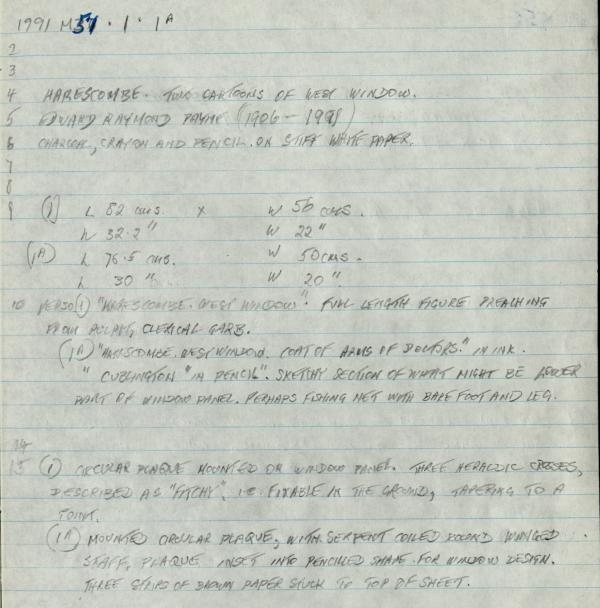 1991 M51 . 1 . 1A
2
3
4 HARESCOMBE. TWO CARTOONS OF WEST WINDOW.
5 EDWARD RAYMOND PAYNE (1906 - 1991)
6 CHARCOAL, CRAYON AND PENCIL. ON STIFF WHITE PAPER.
7
8
9 (1) L 82 cms. x W 56 cms.
h 32.2" W 22"
(1A) L 76.5 cms. W 50 cms.
L 30" W 20".
10 VERSO (1) "HARESCOMBE. WEST WINDOW". FULL LENGTH FIGURE PREACHING
FROM PULPIT, CLERICAL GARB.
(1A) "HARESCOMBE. WEST WINDOW. COAT OF ARMS OF DOCTORS." IN INK.
"CUBLINGTON" IN PENCIL". SKETCHY SECTION OF WHAT MIGHT BE LOWER
PART OF WINDOW PANEL. PERHAPS FISHING NET WITH BARE FOOT AND LEG.
14
15 (1) CIRCULAR PLAQUE MOUNTED ON WINDOW PANEL. THREE HERALDIC CROSSES,
DESCRIBED AS "FITCHY", I.E. FIXABLE IN THE GROUND, TAPERING TO A
POINT.
(1A) MOUNTED CIRCULAR PLAQUE, WITH SERPENT COILED ROUND WINGED
STAFF, PLAQUE INSET INTO PENCILLED SHAPE FOR WINDOW DESIGN.
THREE STRIPS OF BROWN PAPER STUCK TO TOP OF SHEET.